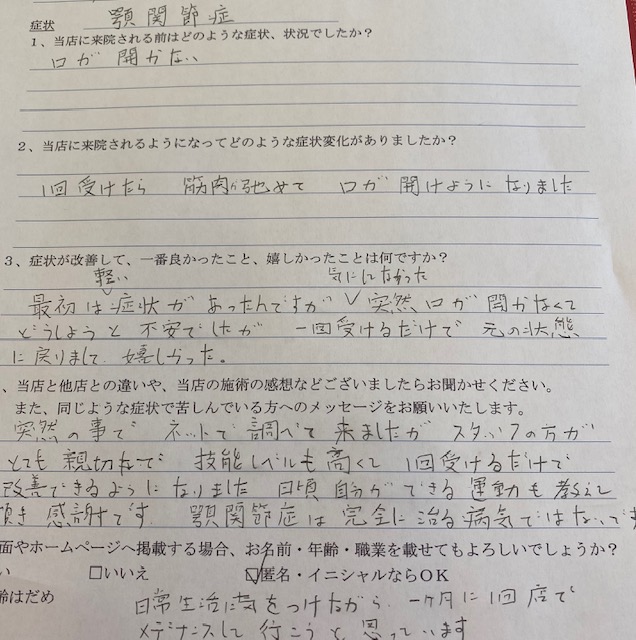 症状 顎関節症
1、当店に来院される前はどのような症状、状況でしたか？
口が開かない
2、当店に来院されるようになってどのような症状変化がありましたか？
1回受けたら 筋肉が弛めて 口が開けようになりました
3、症状が改善して、一番良かったこと、嬉しかったことは何ですか？
軽い 気にしてなかった
最初は症状があったんですが 突然口が開かなくて
どうしようと不安でしたが 一回受けるだけで 元の状態
に戻りまして 嬉しかった。
、当店と他店との違いや、当店の施術の感想などございましたらお聞かせください。
また、同じような症状で苦しんでいる方へのメッセージをお願いいたします。
突然の事で ネットで調べて来ましたが スタッフの方が
とても親切なで 技能レベルも高くて 1回受けるだけで
改善できるようになりました 日頃自分ができる運動も教えて
頂き感謝です. 顎関節症は完全に治る病気ではないです
面やホームページへ掲載する場合、お名前・年齢・職業を載せてもよろしいでしょうか？
い □いいえ ☑匿名・イニシャルならOK
齢はだめ
日常生活に気をつけながら. 一ヶ月に1回店で
メデナンスして行こうと思っています